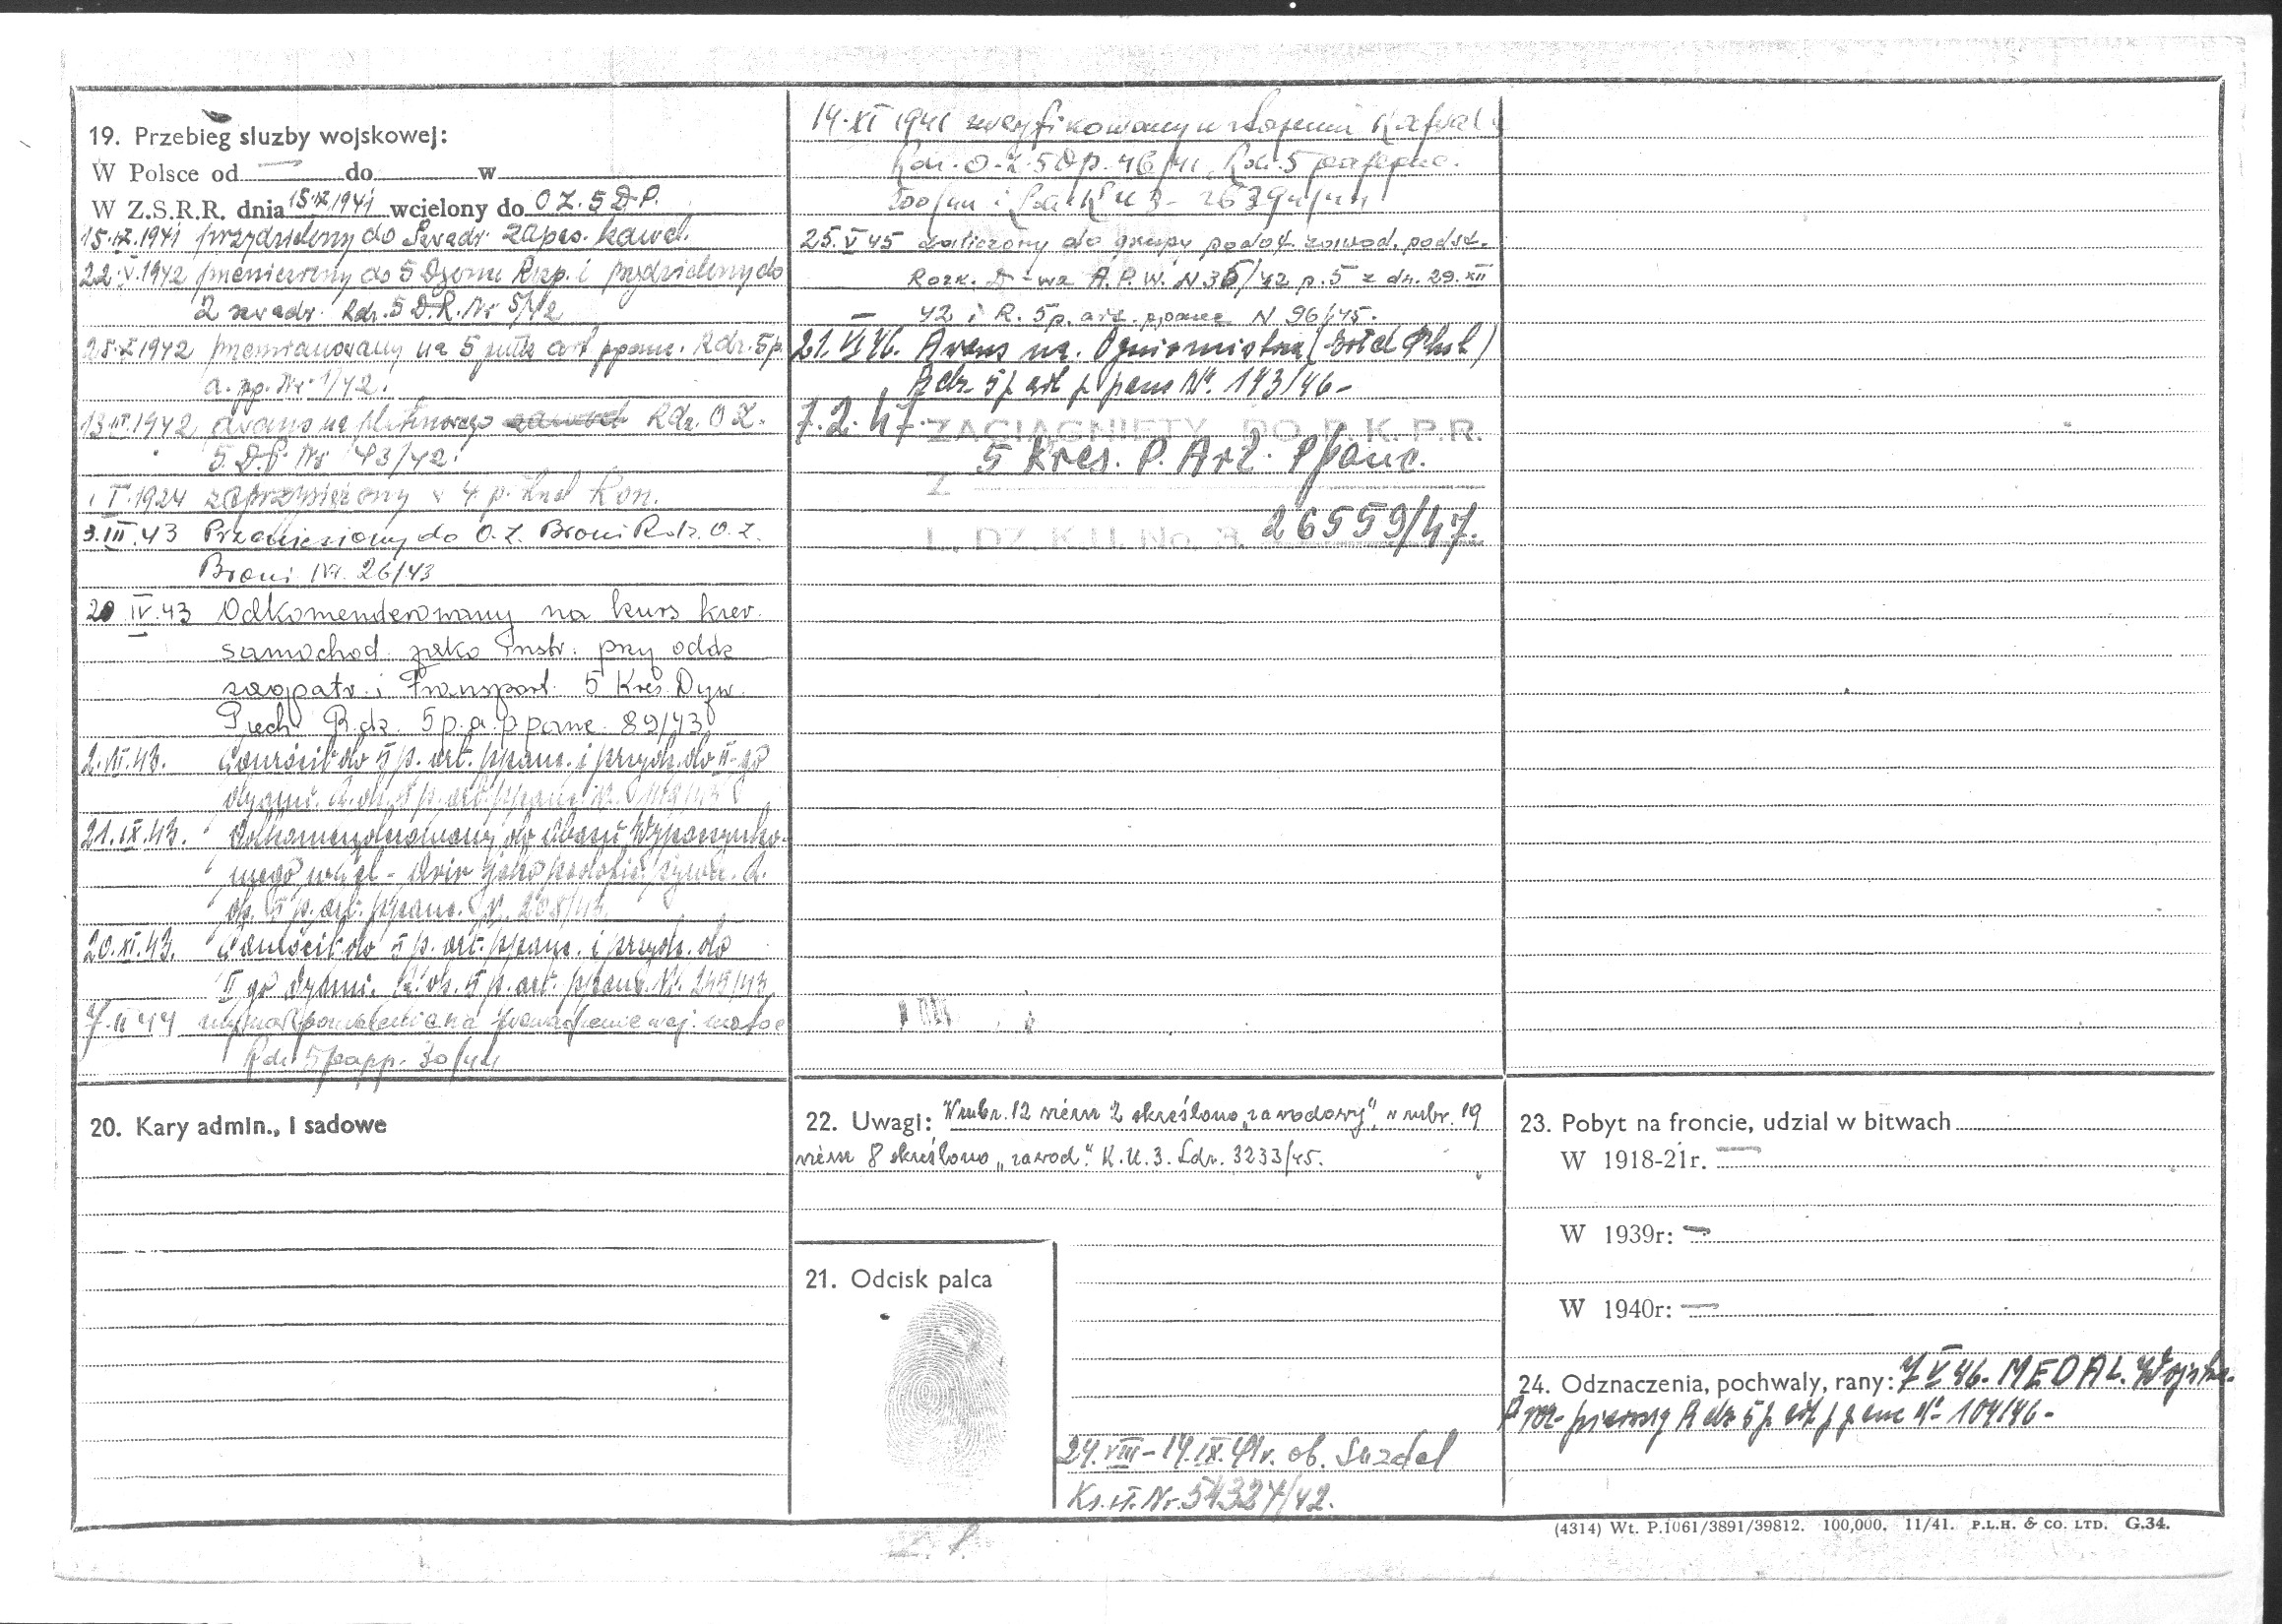 19. Przebieg sluzby wojskowej:
W Polsce od — do w
W Z.S.R.R. dnia 15.IX.1941 wcielony do O.Z. 5 D.P.
15.IX.1941 przydzielony do Szwadr. zapas. kawal.
22.V.1942 przeniesiony do 5 Dyonu Rozp. i przydzielony do
2 szwadr. Rdz. 5 D.R. Nr 5/42
28.X.1942 przemianowany na 5 pułk art ppanc. Rdz. 5 p.
a. pp. Nr 1/42.
1942 awans na plutonowego Rdz. O.Z.
5. D.P. Nr 43/42.
1924 zaprzysiężony w 4. p. Kon.
3.III.43 Przeniesiony do O.Z. Broni Rdz. O.Z.
Broni Nr. 26/43
20 IV.43 Odkomenderowany na kurs kier.
samochod. jako instr. przy oddz
zaopatr. i Transport. 5 Kres. Dyw.
Piech. R.dz. 5 p.a.p panc. 89/43
powrócił do 5 p. art. ppanc. i przydz. do II-go
dyonu. R. dz. 5 p. art. ppanc.
21.IX.43. Odkomenderowany do Obozu Wypoczynko-
wego jako podofic. R.
dz. 5 p. art. ppanc. Nr.
20.XI.43. powrócił do 5 p. art. ppanc. i przydz. do
II go dyonu. R. dz. 5 p. art. ppanc. Nr. 245/43
7.II 44 na prowadzenie
Rdz 5 papp. 30/44
14.XI 1941 zweryfikowany w stopniu
Rdz. O.Z. 5 Dp. 46/41, Rdz. 5
25.V 45 zaliczony do grupy podof. zawod. podst.
Rozk. D-wa A.P.W. N 36/42 p. 5 z dn. 29.XII
42 i R. 5 p. art. ppanc N 96/45.
21.VI 46. Awans na. Ogniomistrza
Rdz 5 p art p panc Nr. 143/46-
7.2.47. ZACIAGNIETY DO P.K.P.R.
5 Kres. P. Art. Ppanc.
Z
L. DZ. K.U. No. 3. 26559/47.
20. Kary admin., i sadowe
22. Uwagi: W rubr. 12 wiersz 2 określono „zawodowy", w rubr. 19
wiersz 8 określono „zawod." K.U.3. Ldz. 3233/45.
21. Odcisk palca
24.VIII-14.IX.41r. ob. Suzdal
Nr. 54327/42.
23. Pobyt na froncie, udzial w bitwach
W 1918-21r. —
W 1939r: —
W 1940r: —
24. Odznaczenia, pochwaly, rany: 7 V 46. MEDAL. Wojska.
pierwszy Rdz 5 p art p panc Nr 104/46-
(4314) Wt. P.1061/3891/39812. 100,000. 11/41. P.L.H. & CO. LTD. G.34.